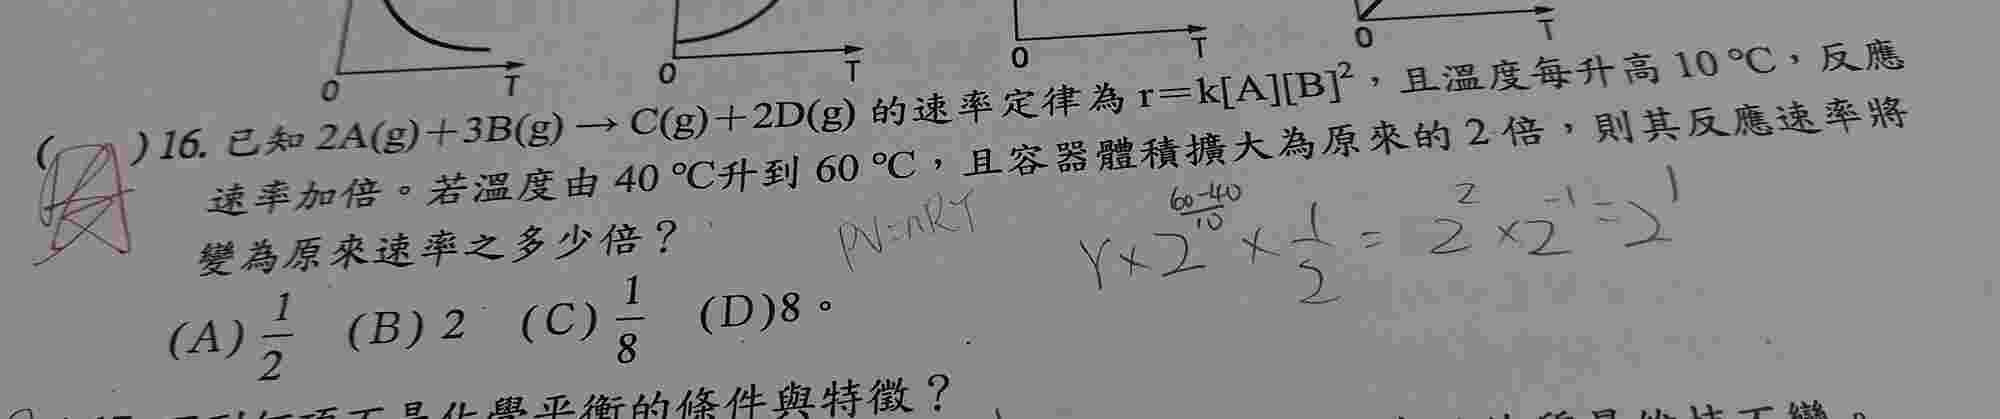 O T O T O T O T
( A )16. 已知 2A(g)+3B(g) → C(g)+2D(g) 的速率定律為 r=k[A][B]²,且溫度每升高 10 ℃,反應
速率加倍。若溫度由 40 ℃升到 60 ℃,且容器體積擴大為原來的 2 倍,則其反應速率將
變為原來速率之多少倍?
PV=nRT
r×2^((60-40)/10) × 1/2 = 2² ×2⁻¹ = 2¹
(A) 1/2 (B) 2 (C) 1/8 (D)8。
化學平衡的條件與特徵?